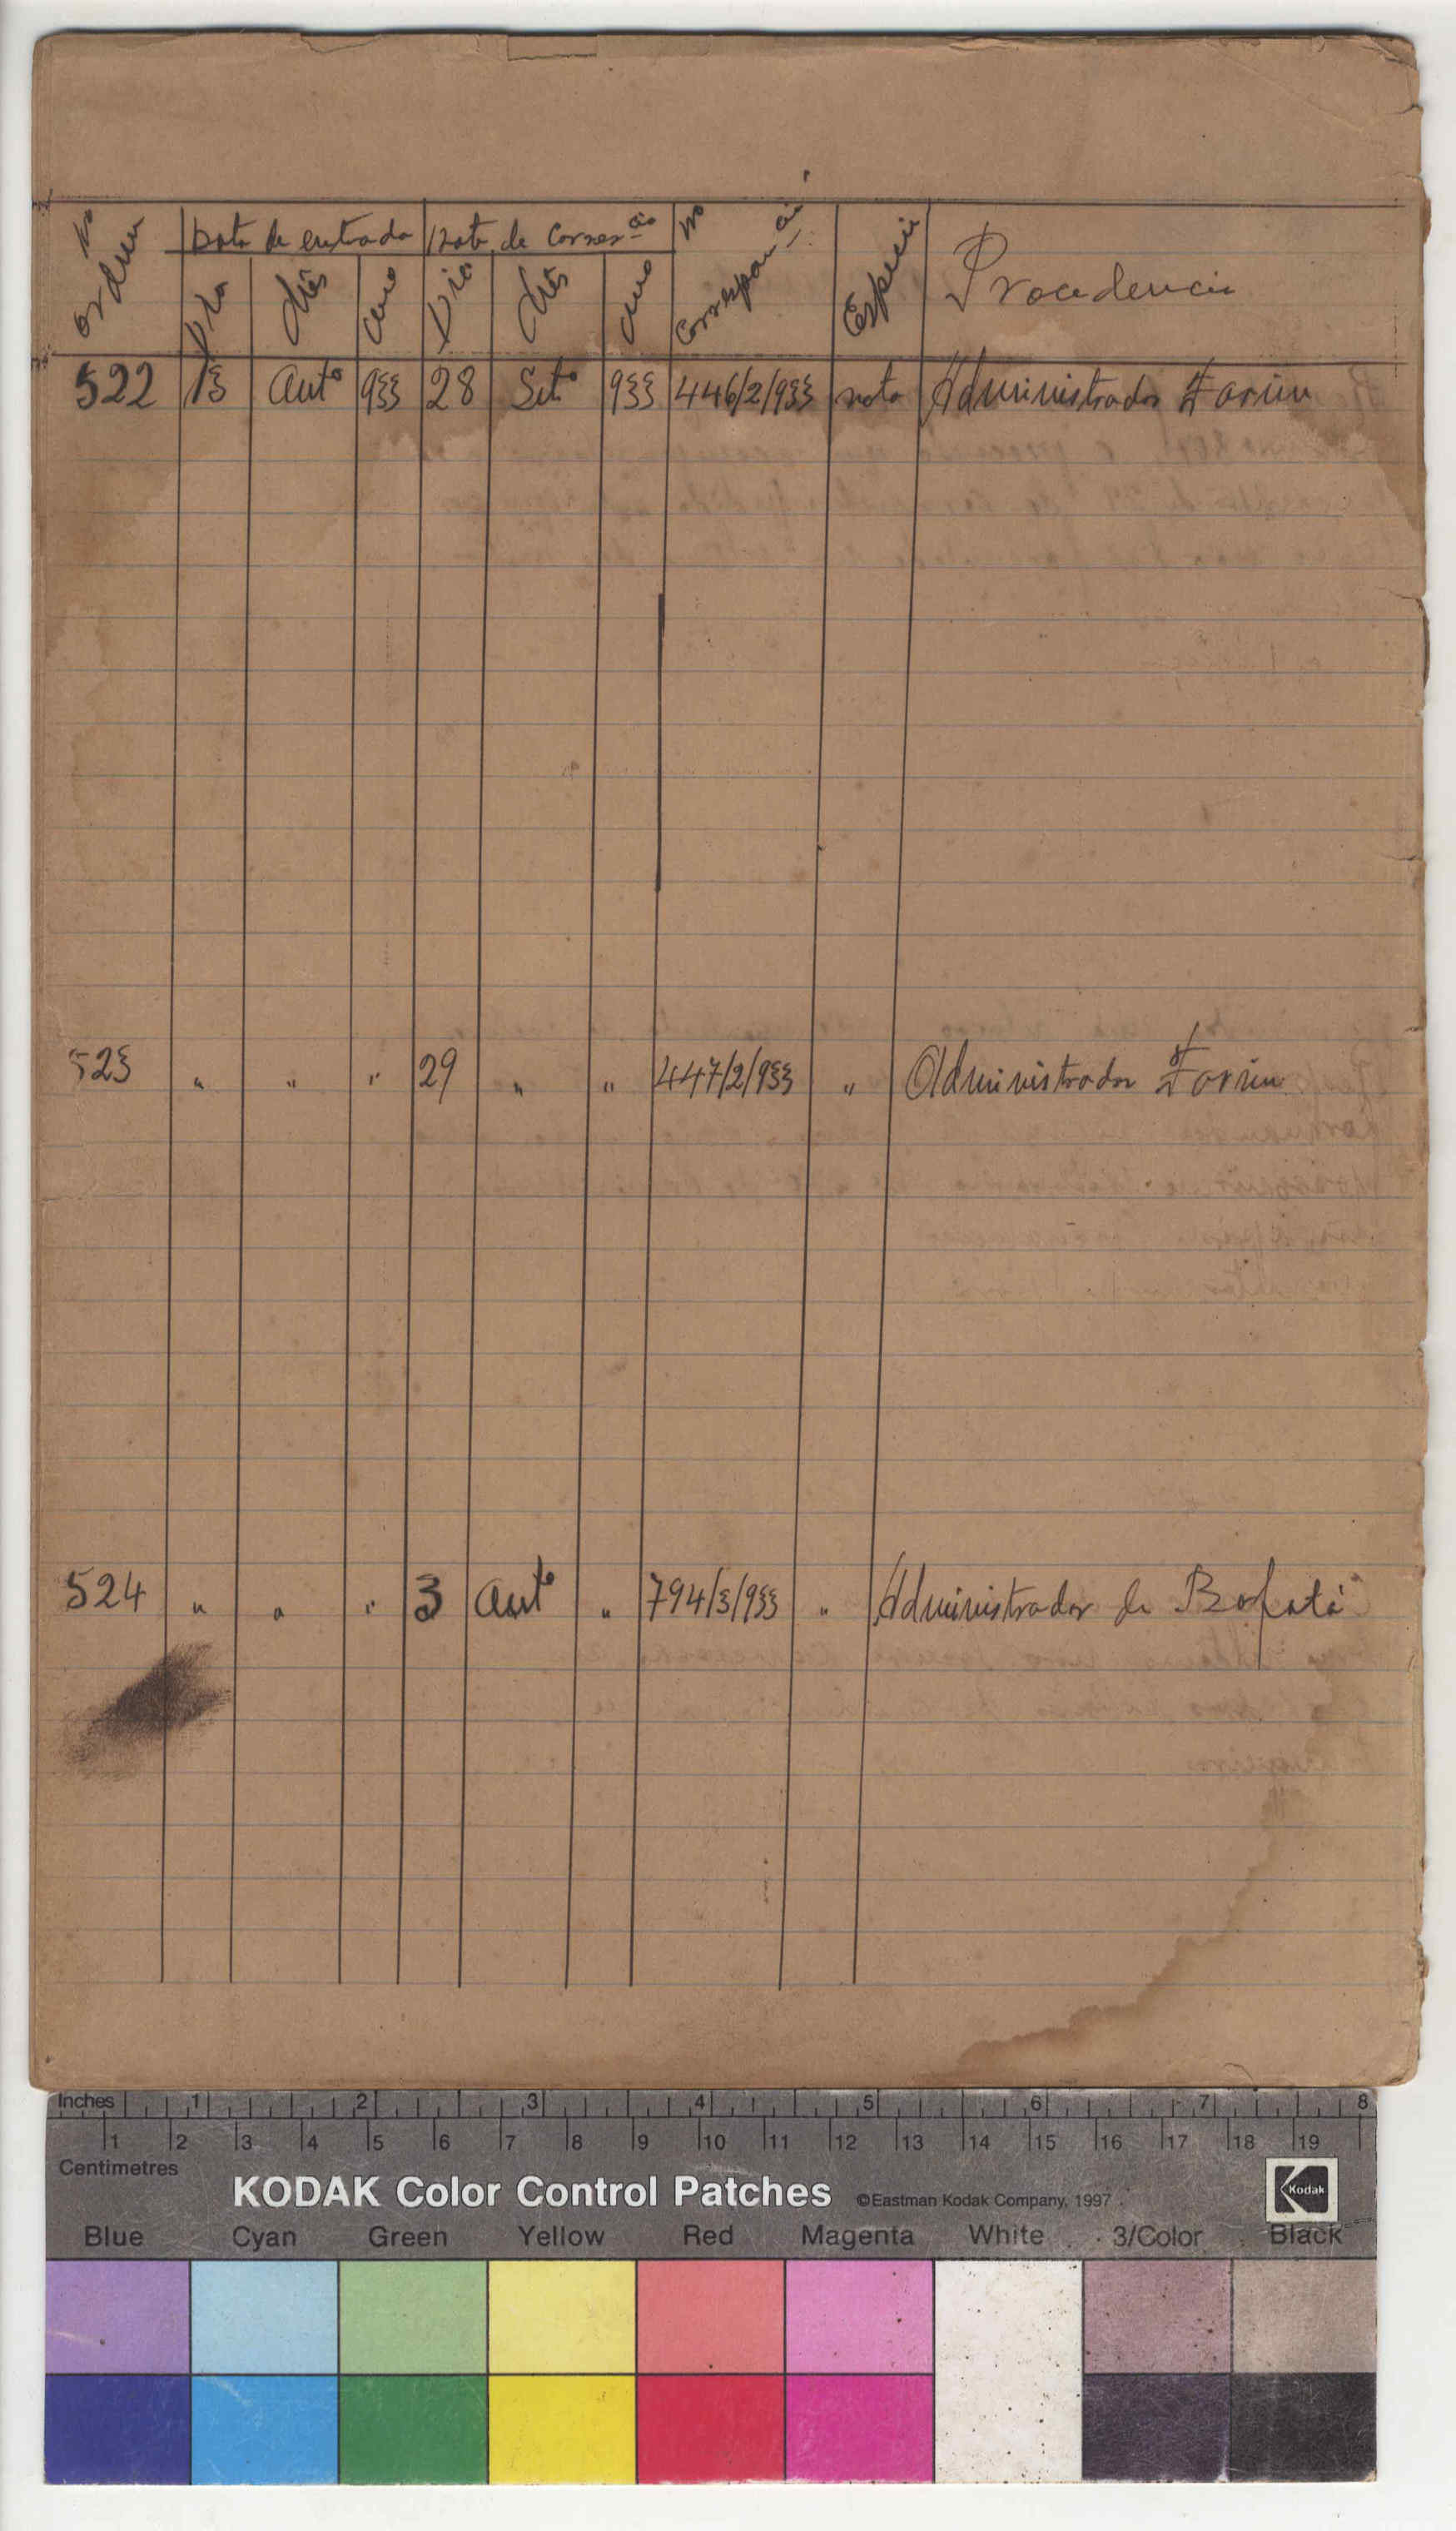 Nº ordem | Data de entrada | Data de Corres.cia | Nº Correspon.cia | Especie | Procedencia
Dia | Mês | Ano | Dia | Mês | Ano
522 | 13 | Outº | 933 | 28 | Setº | 933 | 446/2/933 | nota | Administrador Farim
523 | " | " | " | 29 | " | " | 447/2/933 | " | Administrador Farim
524 | " | " | " | 3 | Outº | " | 794/3/933 | " | Administrador de Bafatá
Inches 1 2 3 4 5 6 7 8
1 2 3 4 5 6 7 8 9 10 11 12 13 14 15 16 17 18 19
Centimetres
KODAK Color Control Patches ©Eastman Kodak Company, 1997 Kodak
Blue Cyan Green Yellow Red Magenta White 3/Color Black